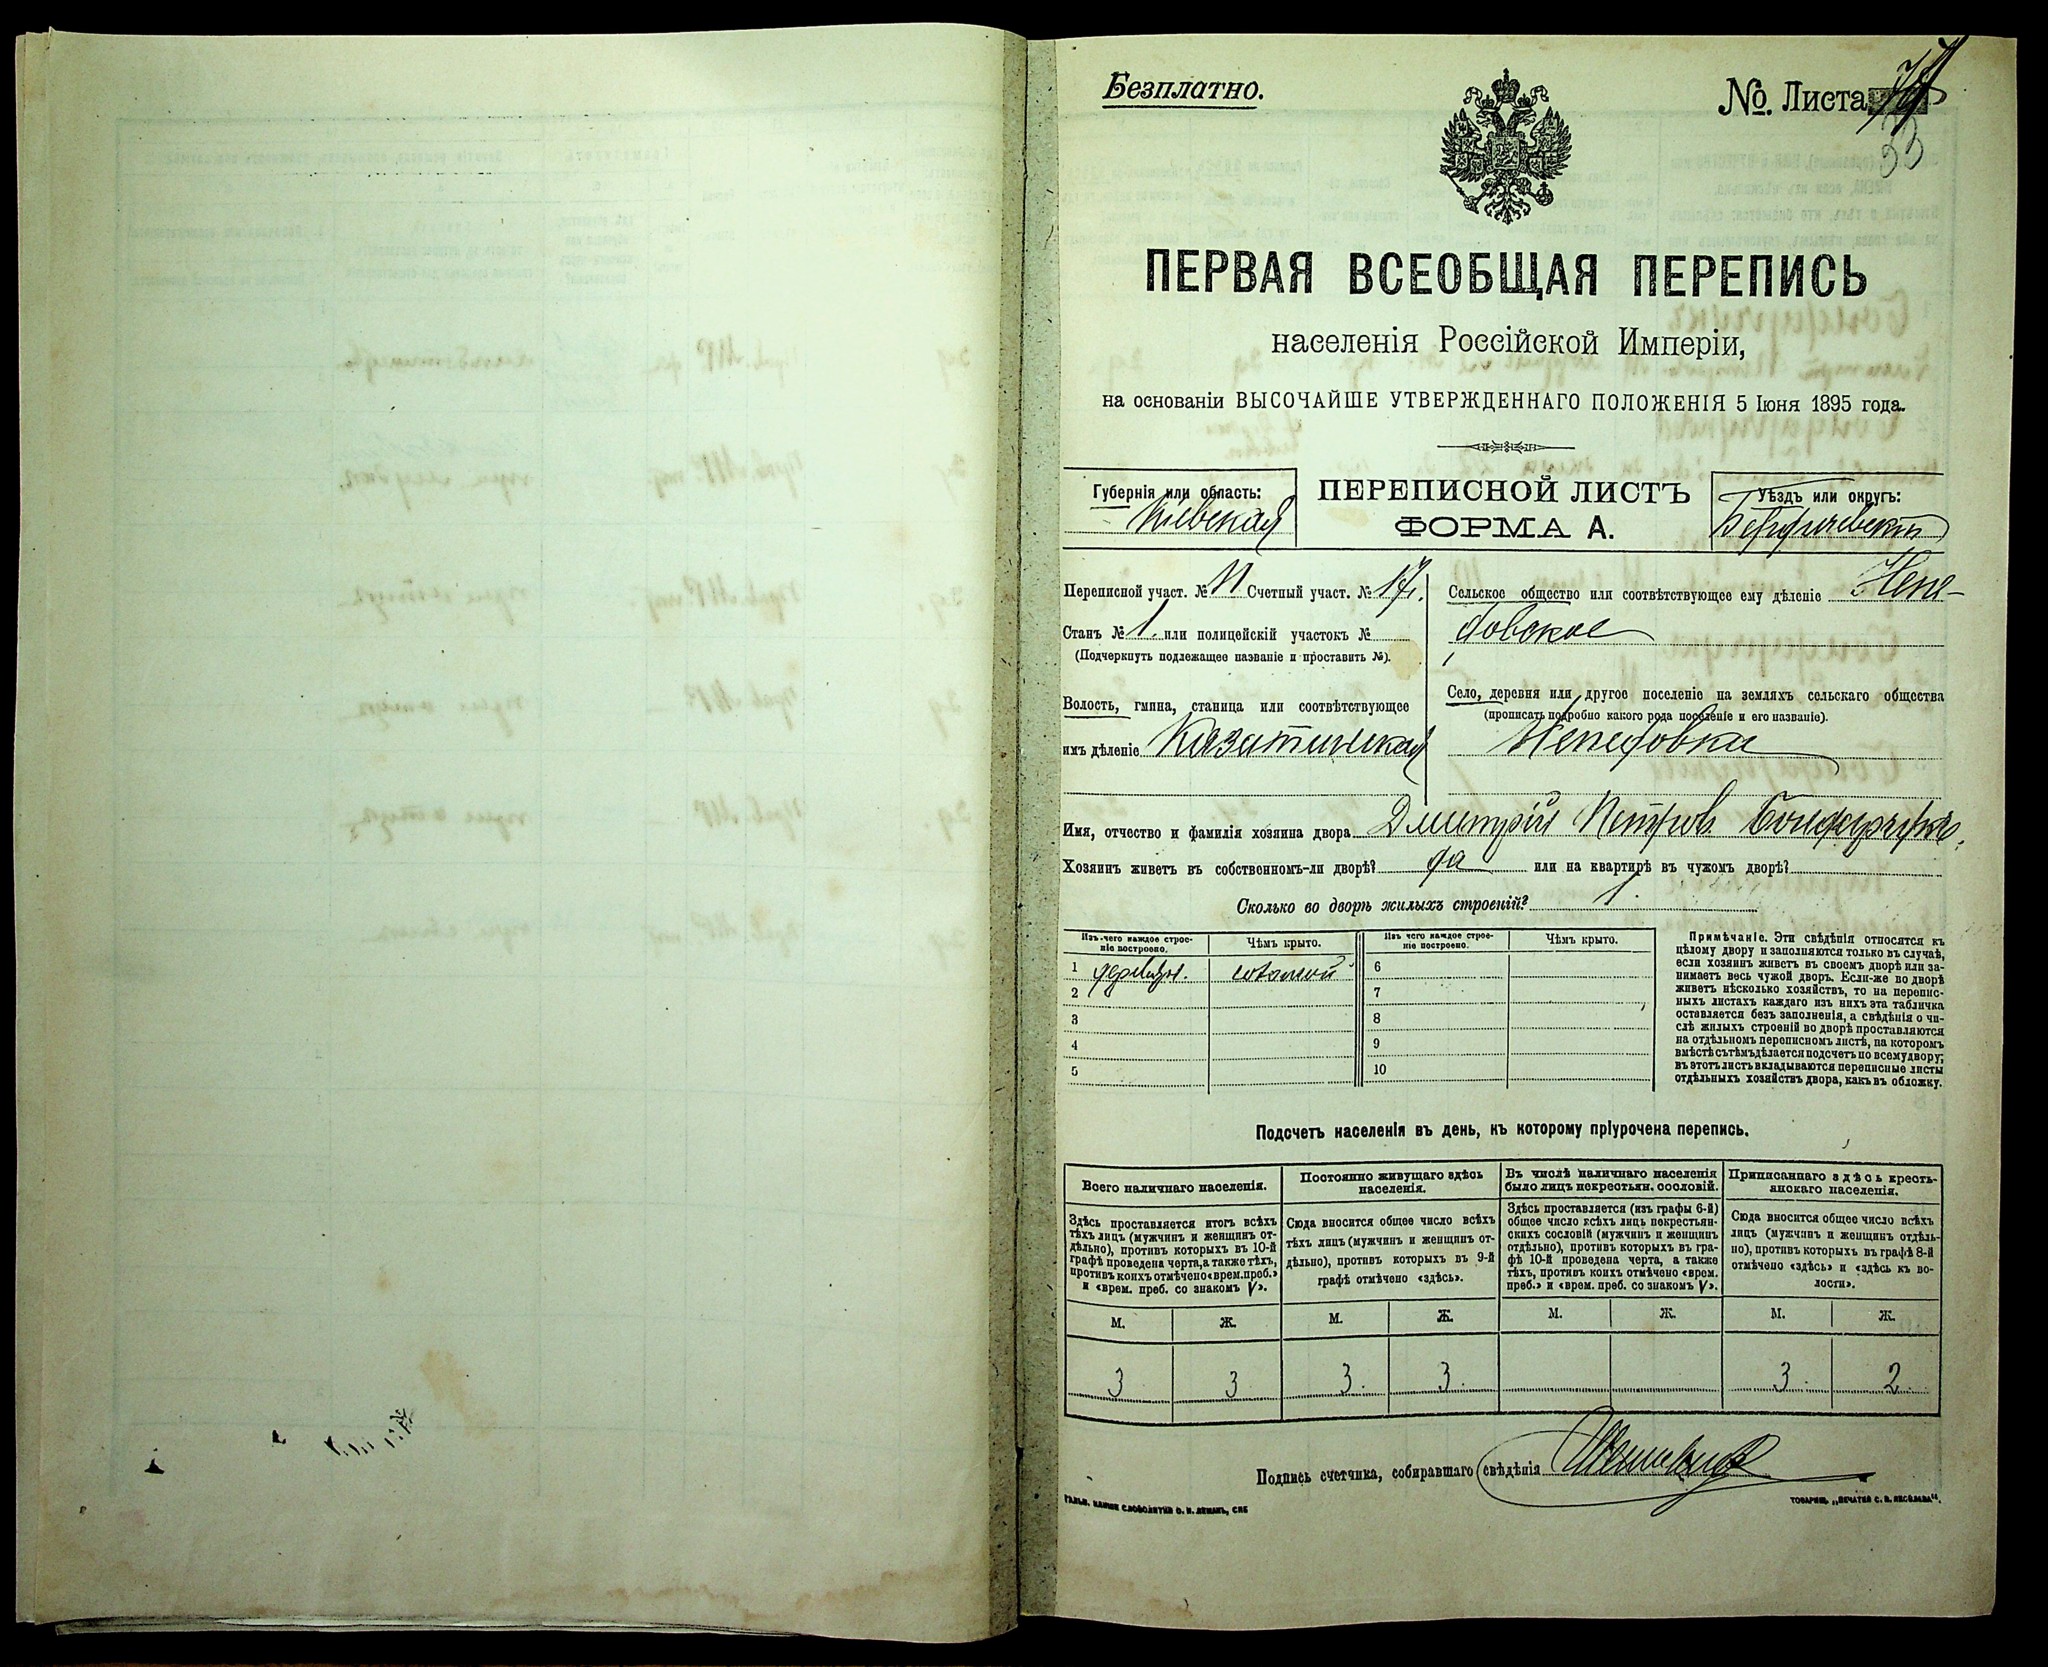 Безплатно.
№ Листа
33
ПЕРВАЯ ВСЕОБЩАЯ ПЕРЕПИСЬ
населенія Россійской Имперіи,
на основаніи ВЫСОЧАЙШЕ УТВЕРЖДЕННАГО ПОЛОЖЕНІЯ 5 Іюня 1895 года.
Губернія или область:
Кіевская
ПЕРЕПИСНОЙ ЛИСТЪ
ФОРМА А.
Уѣздъ или округъ:
Бердичевскій
Переписной участ. № 11 Счетный участ. № 17.
Станъ № 1. или полицейскій участокъ №
(Подчеркнуть подлежащее названіе и проставить №).
Волость, гмина, станица или соотвѣтствующее
имъ дѣленіе Казатинская
Сельское общество или соотвѣтствующее ему дѣленіе Непе-
довское
Село, деревня или другое поселеніе на земляхъ сельскаго общества
(прописать подробно какого рода поселеніе и его названіе).
Непедовка
Имя, отчество и фамилія хозяина двора Дмитрій Петров Бондарчукъ.
Хозяинъ живетъ въ собственномъ-ли дворѣ? да или на квартирѣ въ чужомъ дворѣ?
Сколько во дворѣ жилыхъ строеній? 1.
Изъ чего каждое строе-
ніе построено.
Чѣмъ крыто.
Изъ чего каждое строе-
ніе построено.
Чѣмъ крыто.
1 деревян. соломой 6
2 7
3 8
4 9
5 10
Примѣчаніе. Эти свѣдѣнія относятся къ
цѣлому двору и заполняются только въ случаѣ,
если хозяинъ живетъ въ своемъ дворѣ или за-
нимаетъ весь чужой дворъ. Если-же во дворѣ
живетъ нѣсколько хозяйствъ, то на перепис-
ныхъ листахъ каждаго изъ нихъ эта табличка
оставляется безъ заполненія, а свѣдѣнія о чи-
слѣ жилыхъ строеній во дворѣ проставляются
на отдѣльномъ переписномъ листѣ, на которомъ
вмѣстѣ съ тѣмъ дѣлается подсчетъ по всему двору;
въ этотъ листъ вкладываются переписные листы
отдѣльныхъ хозяйствъ двора, какъ въ обложку.
Подсчетъ населенія въ день, къ которому пріурочена перепись.
Всего наличнаго населенія.
Здѣсь проставляется итогъ всѣхъ
тѣхъ лицъ (мужчинъ и женщинъ от-
дѣльно), противъ которыхъ въ 10-й
графѣ проведена черта, а также тѣхъ,
противъ коихъ отмѣчено «врем. преб.»
и «врем. преб. со знакомъ V».
Постоянно живущаго здѣсь
населенія.
Сюда вносится общее число всѣхъ
тѣхъ лицъ (мужчинъ и женщинъ от-
дѣльно), противъ которыхъ въ 9-й
графѣ отмѣчено «здѣсь».
Въ числѣ наличнаго населенія
было лицъ некрестьян. сословій.
Здѣсь проставляется (изъ графы 6-й)
общее число всѣхъ лицъ некрестьян-
скихъ сословій (мужчинъ и женщинъ
отдѣльно), противъ которыхъ въ гра-
фѣ 10-й проведена черта, а также
тѣхъ, противъ коихъ отмѣчено «врем.
преб.» и «врем. преб. со знакомъ V».
Приписаннаго здѣсь кресть-
янскаго населенія.
Сюда вносится общее число всѣхъ
лицъ (мужчинъ и женщинъ отдѣль-
но), противъ которыхъ въ графѣ 8-й
отмѣчено «здѣсь» и «здѣсь къ во-
лости».
М. Ж. М. Ж. М. Ж. М. Ж.
3 3 3. 3. 3. 2.
Подпись счетчика, собиравшаго свѣдѣнія